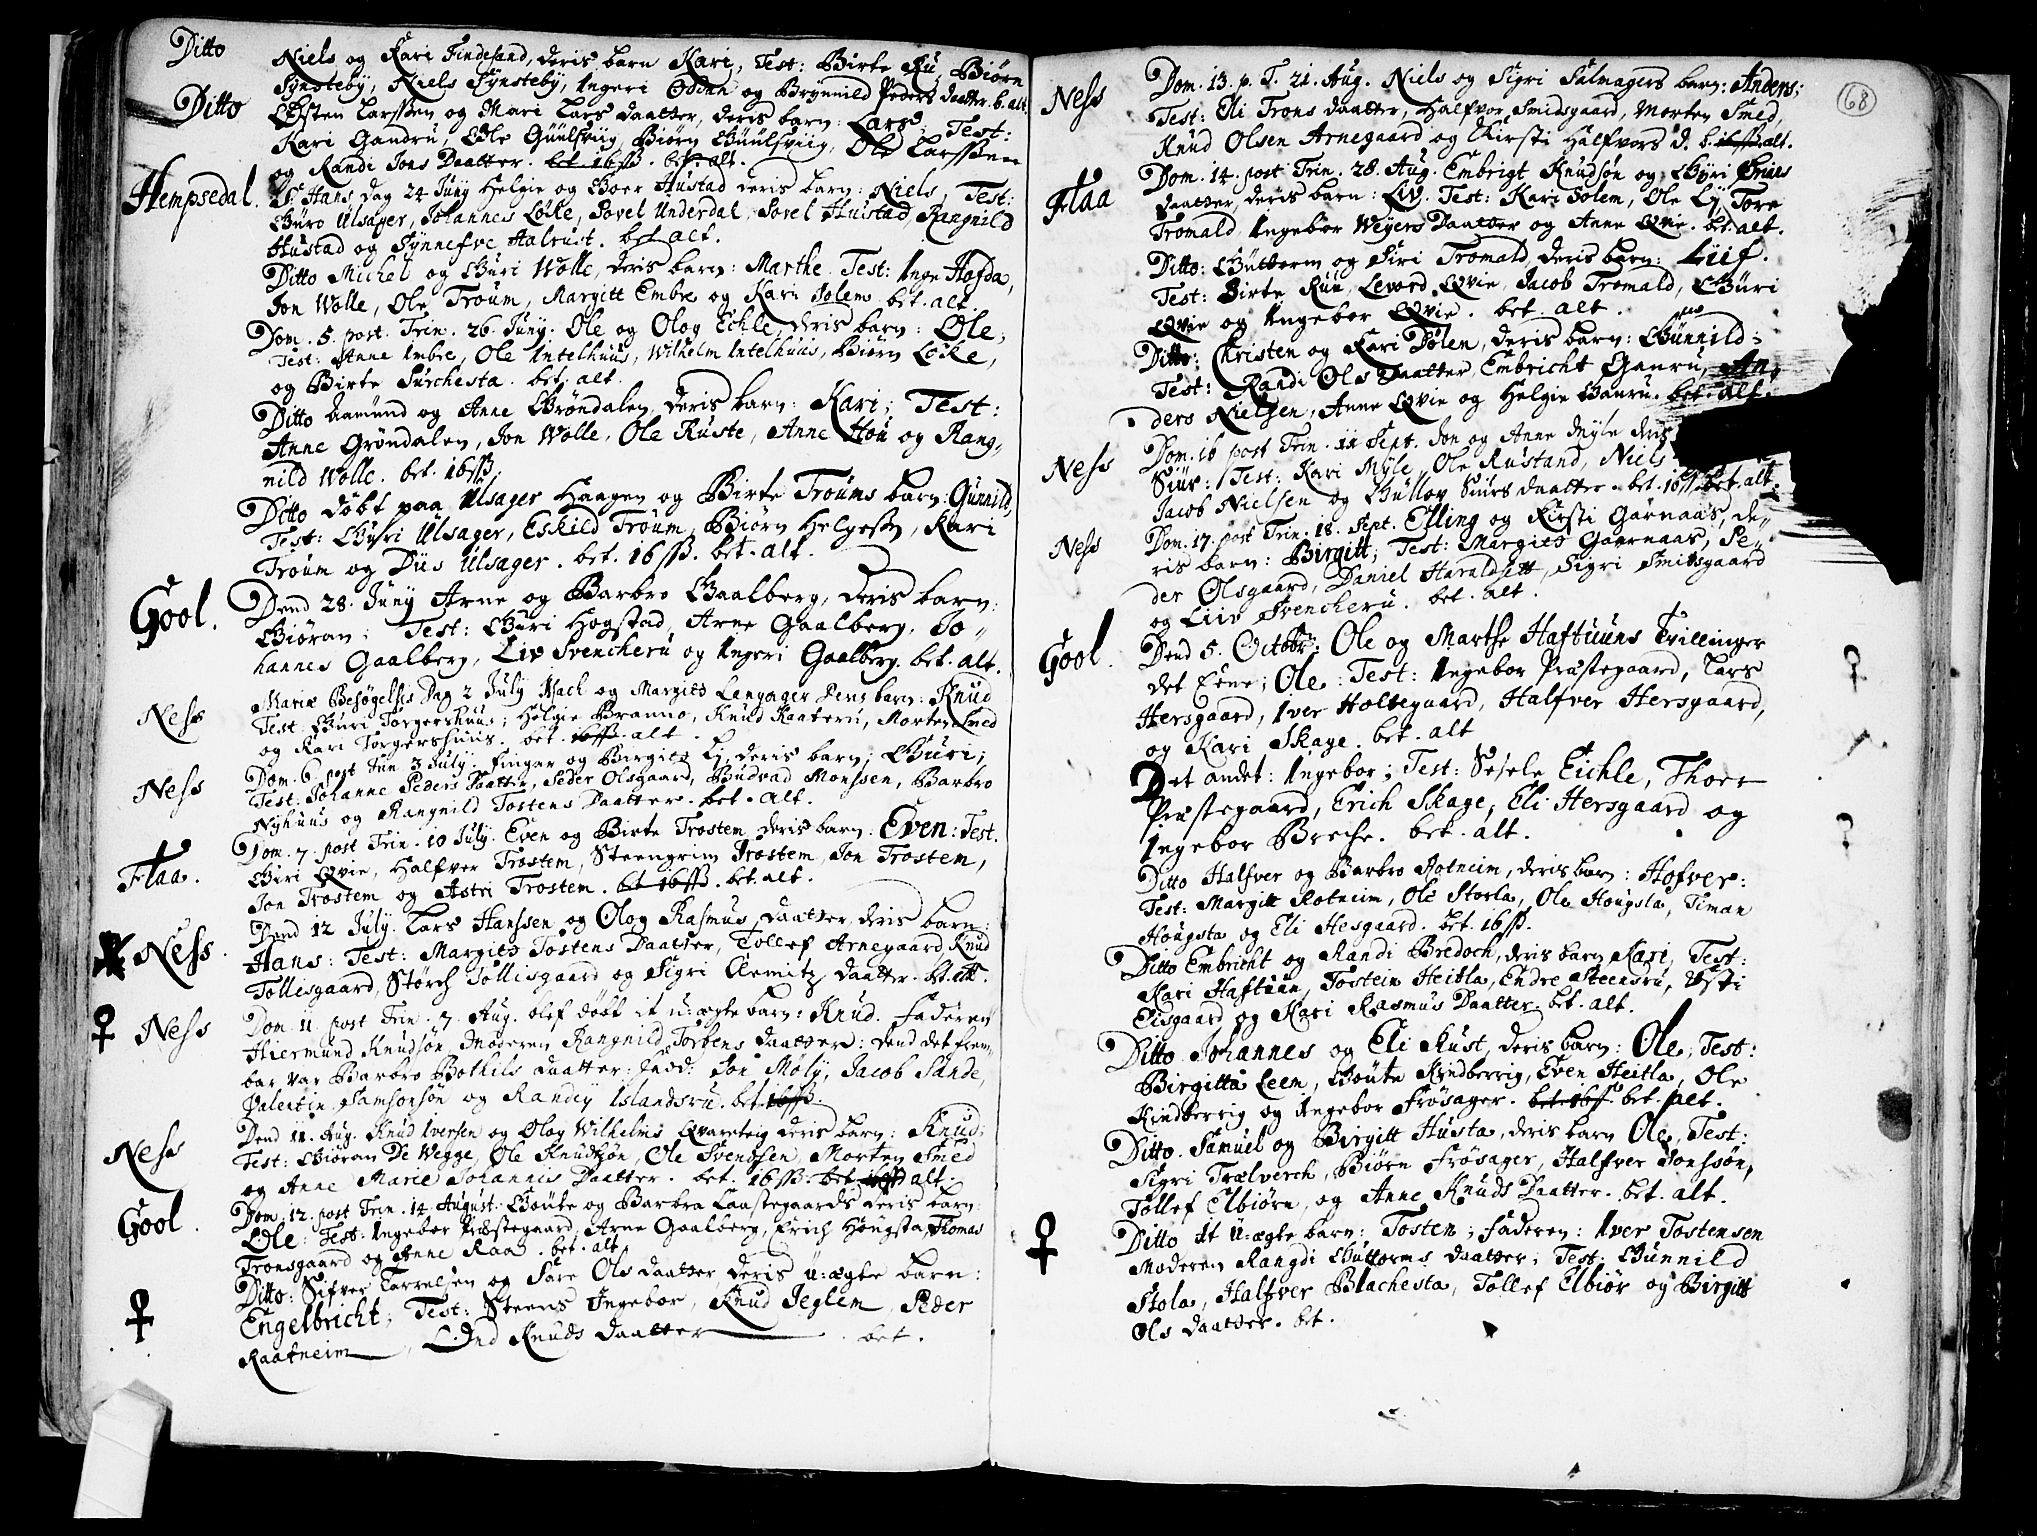 Ditto Niels og Kari Findesand, deris barn Kari, Test: Birte Ru, Biørn
Synsteby, Niels Synsteby, Ingeri Oddan og Brynnild Peders daatter. b. alt.
Ditto Østen Larssen og Mari Lars daatter, deris barn: Lars, Test:
Kari Gandru, Ole Guulsviig, Biørn Guulsviig, Ole Larssen
og Randi Jons Daatter. bet 16 sß. bet. alt.
Hempsedal. St Hans dag 24 Juny Helgie og Goer Hustad deris barn: Niels, Test:
Guro Ulsager, Johannes Løcke, Sovel Underdal, Sovel Hustad, Rangnild
Hustad og Synnefve Halrust. bet alt.
Ditto Michel og Guri Wolle, deris barn: Marthe. Test: Inge Hofda,
Jon Wolle, Ole Troum, Margitt Embre og Kari Solem. bet. alt.
Dom. 5. post. Trin. 26. Juny. Ole og Olog Eckle, deris barn: Ole;
Test: Anne Imbre, Ole Intelhuus, Wilhelm Intelhuus, Biørn Løcke,
og Birte Surchesta. bet. alt.
Ditto Aamund og Anne Grøndalen, deris barn: Kari; Test:
Anne Grøndalen, Jon Wolle, Ole Ruste, Anne Hou og Rang-
nild Wolle. bet. 16 sß.
Ditto døbt paa Ulsager Haagen og Birte Troums barn: Gunnild,
Test: Guri Ulsager, Eskild Troum, Biørn Helgesn, Kari
Troum og Dus Ulsager. bet. 16 sß. bet. alt.
Gool. Dend 28. Juny Arne og Barbro Gaalberg, deris barn:
Giøran; Test: Guri Hogstad, Arne Gaalberg, Jo-
hannes Gaalberg, Liv Svencheru og Ingeri Gaalberg. bet. alt.
Ness Mariæ Besøgelsis Dag 2 July Isach og Margits Lengager Dens barn: Knud
Test Guri Torgershuus; Helgie Branno, Knud Kaateru, Morten Smed
og Kari Torgershuus. bet. 16 sß. alt.
Ness Dom. 6 post Trin 3 July. Fingar og Birgitt Ey, deris barn; Guri;
Test: Johanne Peders Daatter, Peder Olsgaard, Gudvad Monssen, Barbro
Nyhuus og Rangnild Tostens Daatter. bet. alt.
Flaa. Dom. 7. post Trin. 10 July. Even og Birte Trostem deris barn: Even: Test.
Giri Qvie, Halfver Trostem, Steengrim Trostem, Jon Trostem,
Jon Trostem og Astri Trostem. bet 16 sß. bet. alt.
Ness. Dend 12 July. Lars Hanssen og Olog Rasmus daatter deris barn:
Hans: Test: Margits Tostens Daatter, Tollef Arnegaard Knud
Tollesgaard, Størch Tollisgaard og Sigri Clemitz daatter. bt. alt.
♀ Ness Dom. 11 post Trin. 7. Aug. blef døbt it u-ægte barn: Knud. Faderen
Hiermund Knudsøn Moderen Rangnild Torbens daatter: dend det frem-
bar var Barbro Bothils daatter: Fadd: Jon Møly, Jacob Sande,
Valentin Samsonsøn og Randiy Islandsru. bet 16 sß.
Ness Dend 11. Aug. Knud Iversen og Olog Wilhelms Qvarteig deris barn: Knud;
Test: Giøran De Wegge, Ole Knudssøn, Ole Svendsen, Morten Smed
og Anne Marie Johannis Daatter. bet. 16 sß. bet. alt.
Gool. Dom. 12. post Trin. 14 August. Goute og Barbra Laastegaards deris barn:
Ole: Test: Ingebor Præstegaard, Arne Gaalberg, Erich Hougsta, Thomas
Tronsgaard og Anne Raa. bet. alt.
♀ Ditto: Sifver Torrelsen og Sare Ols daatter deris u-ægte barn:
Engelbricht; Test: Steens Ingebor, Knud Jeglem, Peder
Raatneim, Lind Knuds daatter bet.
68
Ness Dom. 13. p. T. 21. Aug. Niels og Sigri Salmagers barn: Anders;
Test: Eli Trons daatter, Halfvor Smidsgaard, Morten Smed,
Knud Olsen Arnegaard og Kirsti Halfvors d. b. 16 sß. alt.
Flaa Dom. 14. post Trin. 28. Aug. Embrigt Knudsøn og Gyri
daatter, deris barn: Liv. Test: Kari Solem, Ole Ey, Tore
Tromald, Ingebor Weyers Daatter og Anne Qvie. bet. alt.
Ditto: Guttorm og Siri Tromald, deris barn: Liif.
Test: Birte Ruu, Levord Qvie, Jacob Tromald, Guri
Qvie og Ingebor Qvie. bet. alt.
Ditto: Christen og Kari Dølen, deris barn: Gunnild:
Test: Randi Ols daatter, Embricht Gauru, An-
ders Nielsen, Anne Qvie og Helgie Gauru. bet. alt.
Ness Dom. 16 post Trin. 11 Sept. Jon og Anne Myle deris
Siur: Test: Kari Myle, Ole Rustand, Niels
Jacob Nielsen og Gullov Siurs daatter. bet. 16 sß. bet. alt.
Ness Dom. 17. post Trin. 18. Sept. Elling og Kirsti Garnaas, de-
ris barn: Birgitt; Test: Margits Gaarnaas, Pe-
der Olsgaard, Daniel Haraldsett, Sigri Smitsgaard
og Liiv Svencheru. bet. alt.
Gool. Dend 5. Octobr: Ole og Marthe Haftuuns Tvillinger
det Eene; Ole: Test: Ingebor Præstegaard, Lars
Hersgaard, Iver Holtegaard, Halfver Hersgaard,
og Kari Skage. bet. alt
Det andet: Ingebor; Test: Sesele Eichle, Thoer
Præstegaard, Erich Skage, Eli Hersgaard og
Ingebor Breche. bet. alt.
Ditto Halfver og Barbro Rotneim, deris barn: Hofver:
Test: Margitt Rotneim, Ole Storla, Ole Hougsla, Timan
Hougsta og Eli Hesgaard. bet. 16 sß.
Ditto Embricht og Randi Bredoch, deris barn Kari, Test:
Kari Haftuun, Tostein Heitla, Endre Steensru, Østi
Eisgaard og Kari Rasmus Daatter. bet. alt.
Ditto Johannes og Eli Rust, deris barn: Ole; Test:
Birgitta Leen, Goute Kyndberrig, Even Heitla, Ole
Kindberrig og Ingebor Frøsager. bet 16 sß. bet. alt.
Ditto. Samuel og Birgitt Husta, deris barn Ole, Test:
Sigri Trælverch, Biørn Frøsager, Halfver Jonssøn,
Tollef Elbiørn, og Anne Knuds Daatter. bet. alt.
♀ Ditto It u-ægte barn: Tosten; faderen: Iver Tostensen
Moderen Rangdi Guttorms daatter; Test: Gunnild
Stola, Halfver Blachesta, Tollef Elbiør og Birgitt
Ols daatter. bet.